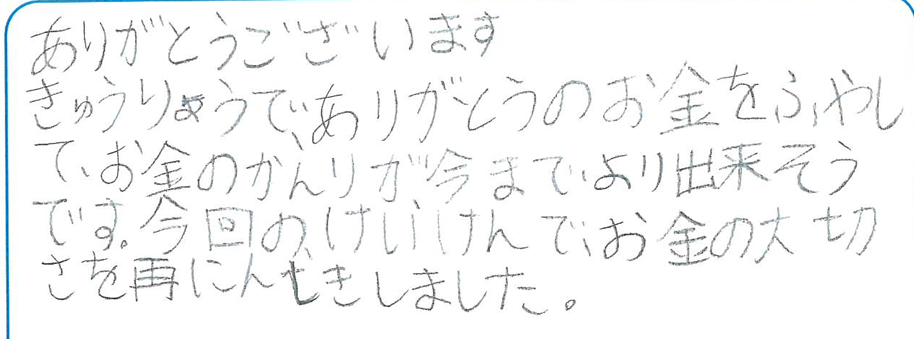 ありがとうございます
きゅうりょうで、ありがとうのお金をふやし
て、お金のかんりが今まで、より出来そう
です。今回の、けいけんで、お金の大切
さを再にんしきしました。